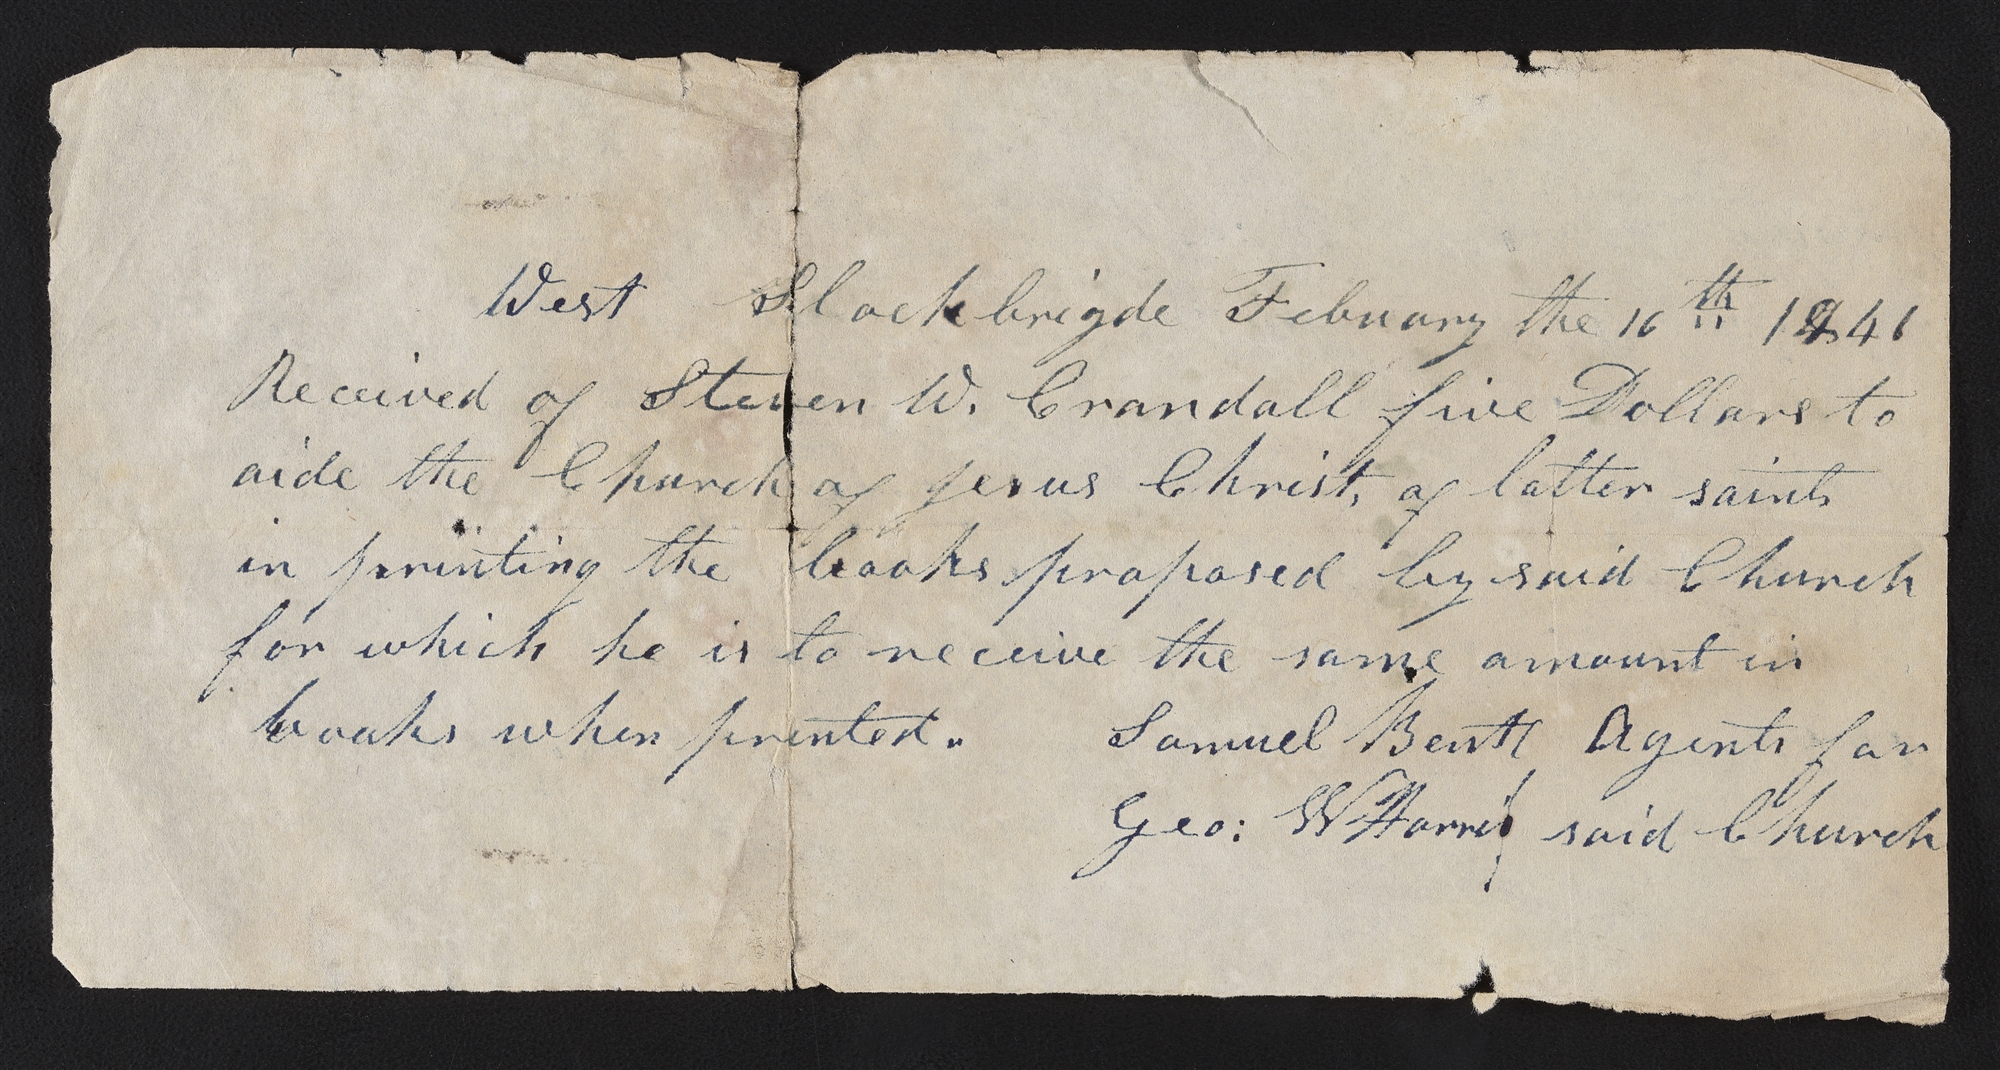 West Stockbrigde Februarry the 16th 1841
Received of Steven W. Crandall five Dollars to
aide the Church of Jesus Christ, of latter saints
in printing the books proposed by said Church
for which he is to receive the same amount in
books when printed. Samuel Bent Agents for
Geo: W Harris said Church